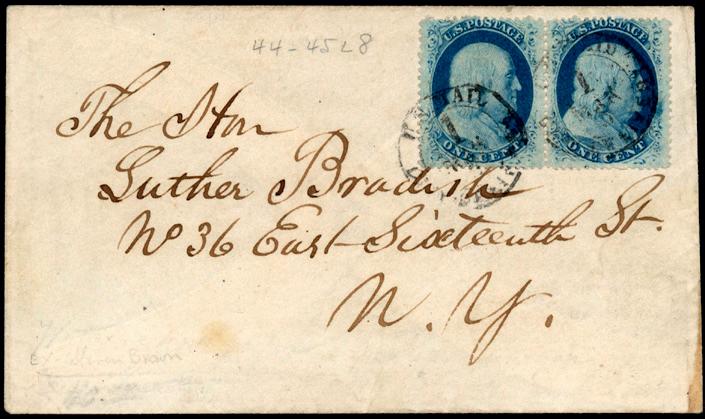 44-45L8
U.S. POSTAGE U.S. POSTAGE
ONE CENT ONE CENT
U.S. MAIL
The Hon
Luther Bradish
No 36 East Sixteenth St.
N. Y.
ex Brown